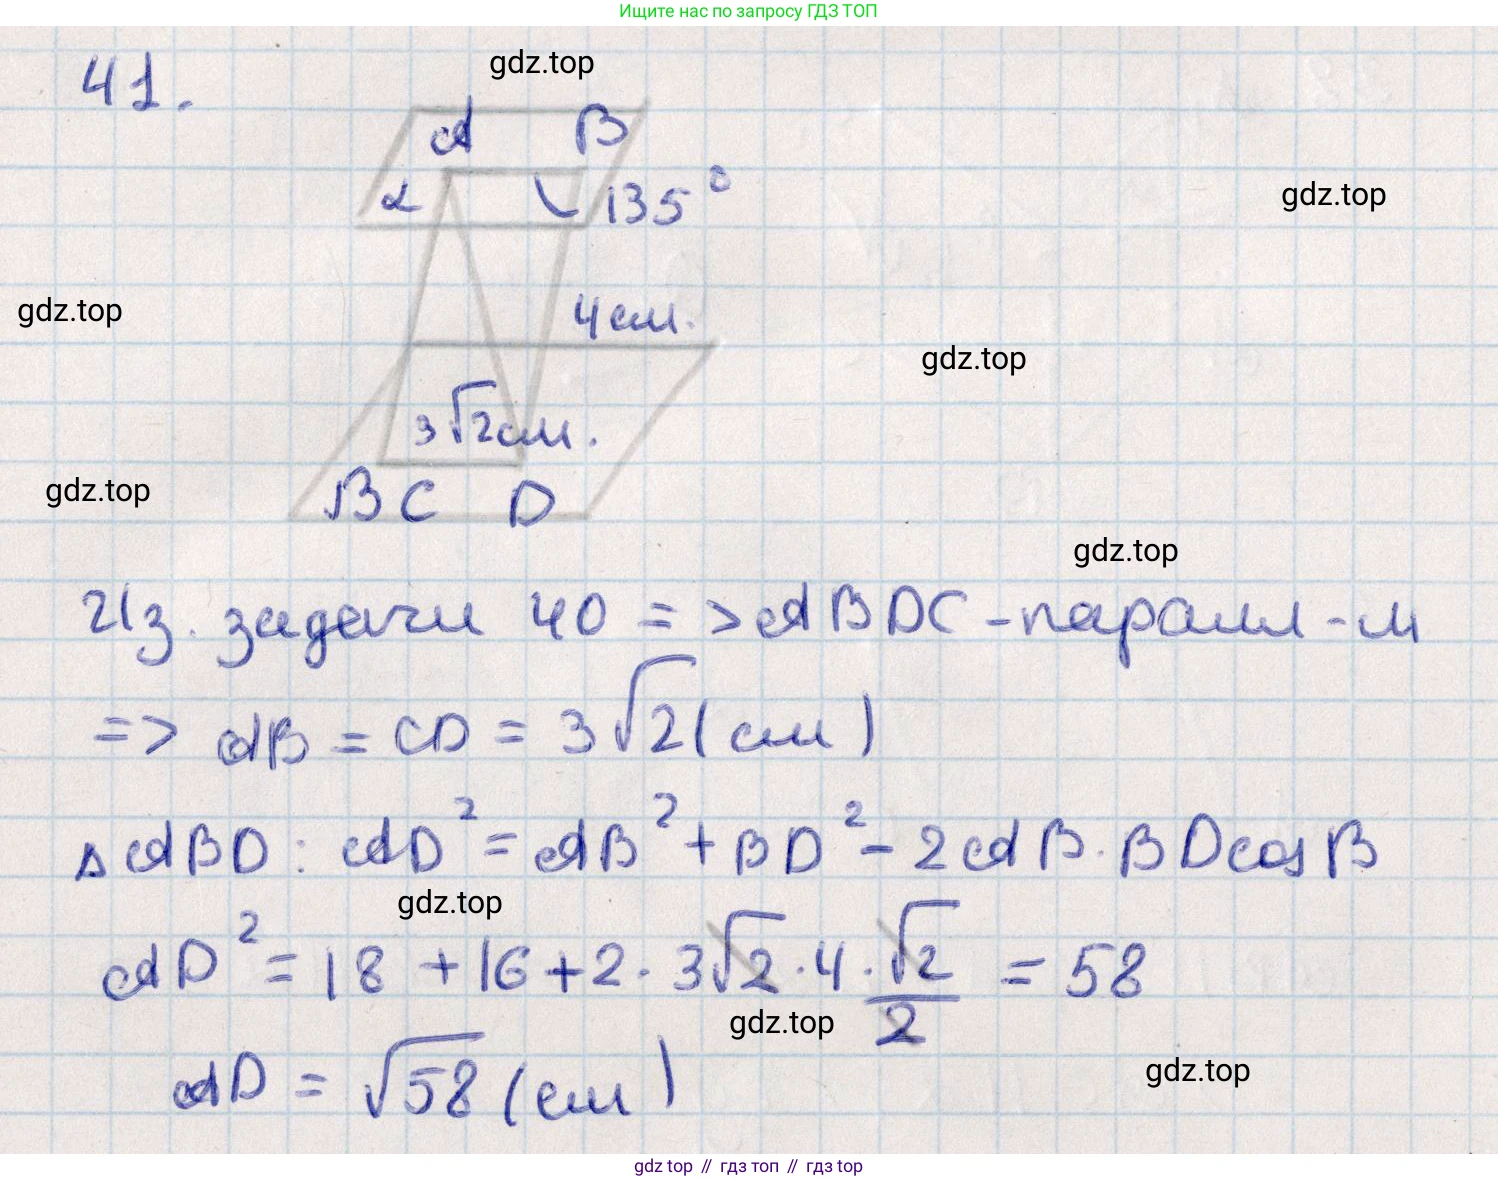 Ищите нас по запросу ГДЗ ТОП
41.
gdz.top
A B
α 135°
gdz.top
gdz.top
4 см.
gdz.top
3√2 см.
gdz.top
β C D
gdz.top
Из задачи 40 => ABDC - паралл-м
=> AB = CD = 3√2 (см)
△ABD: AD² = AB² + BD² - 2AB·BD cos B
gdz.top
AD² = 18 + 16 + 2·3√2·4·√2/2 = 58
gdz.top
AD = √58 (см)
gdz.top
gdz top // гдз топ // гдз top